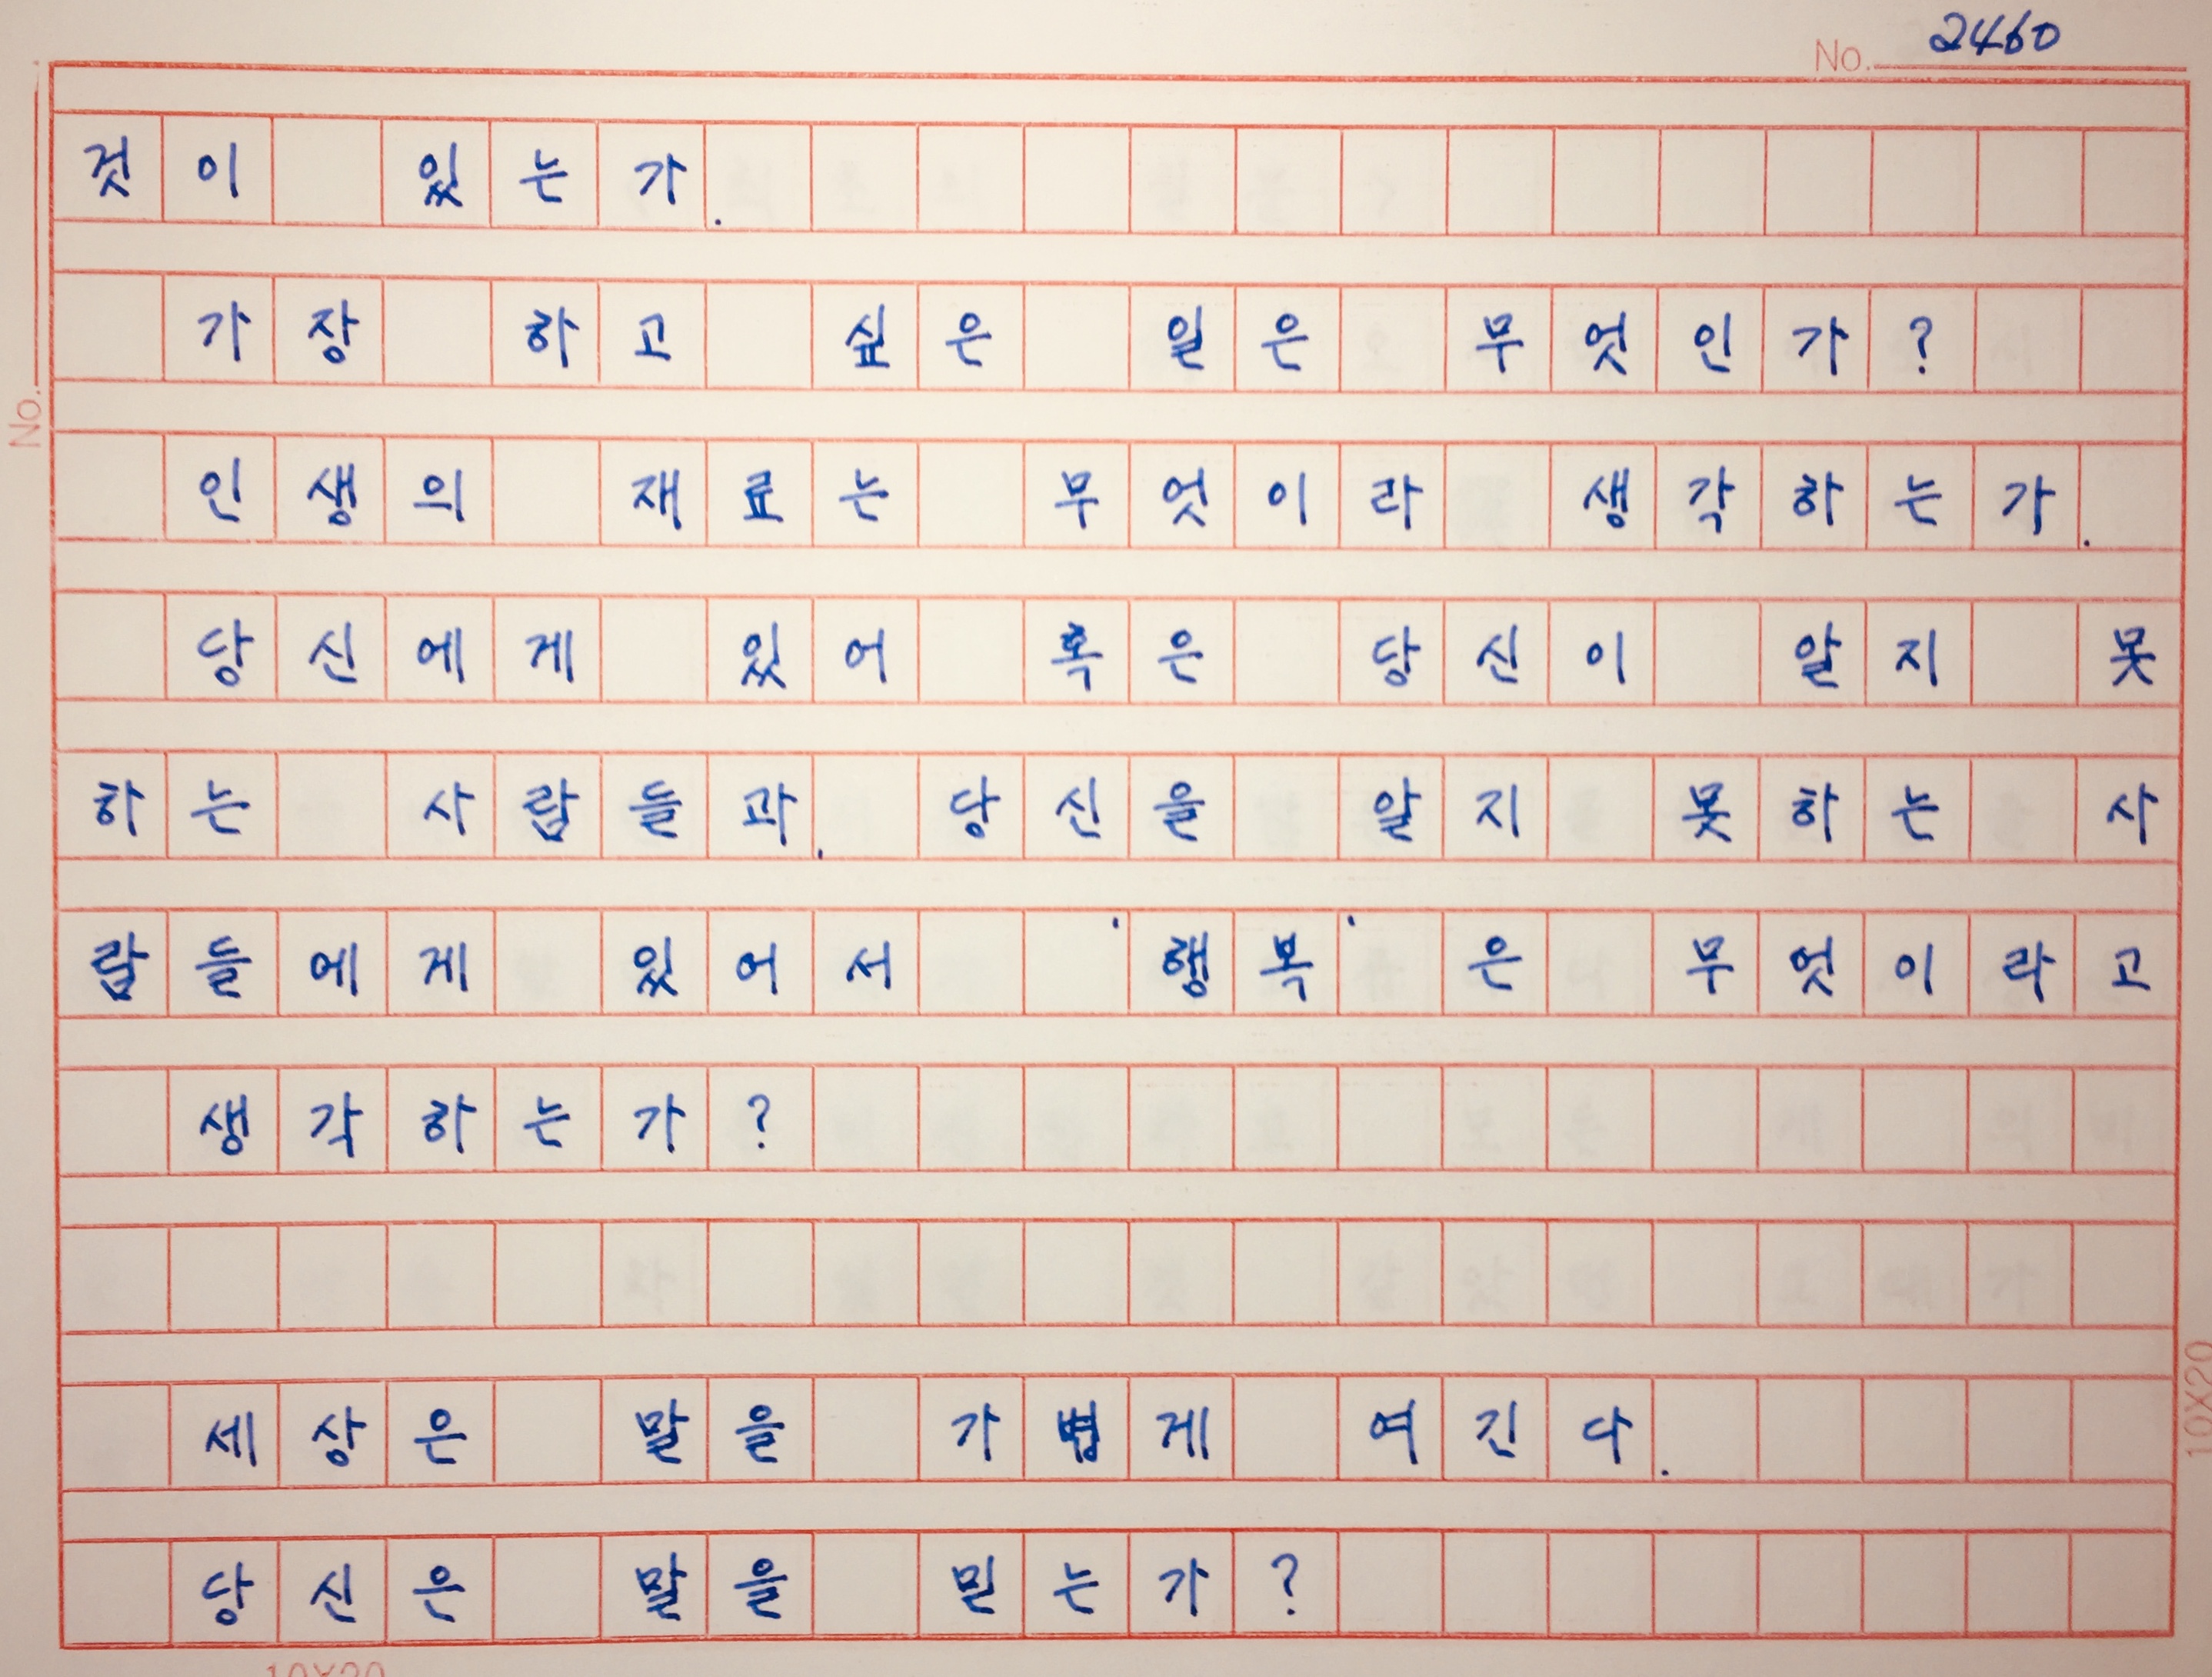 No. 2460
것이 있는가.
가장 하고 싶은 일은 무엇인가?
No.
인생의 재료는 무엇이라 생각하는가.
당신에게 있어 혹은 당신이 알지 못
하는 사람들과, 당신을 알지 못하는 사
람들에게 있어서 '행복'은 무엇이라고
생각하는가?
세상은 말을 가볍게 여긴다.
당신은 말을 믿는가?
10X20
10X20